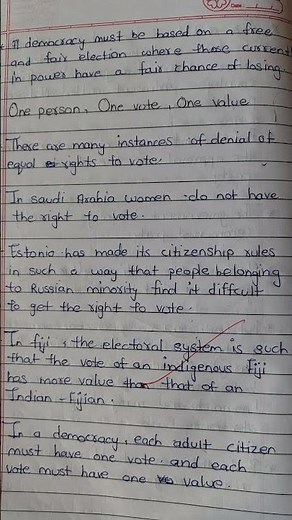 A democracy must be based on a free
and fair election where those current
in power have a fair chance of losing.
One person, One vote, One value
There are many instances of denial of
equal rights to vote.
In saudi Arabia women do not have
the right to vote.
Estonia has made its citizenship rules
in such a way that people belonging
to Russian minority find it diffcult
to get the right to vote.
In fiji, the electoral system is such
that the vote of an indigenous Fiji
has more value than that of an
Indian-Fijian.
In a democracy, each adult citizen
must have one vote and each
vote must have one value.